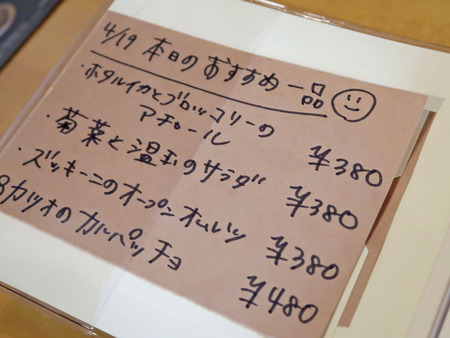 4/19 本日のおすすめ一品
・ホタルイカとブロッコリーの
アチョール ¥380
・菊菜と温玉のサラダ ¥380
・ズッキーニのオープンオムレツ ¥380
カツオのカルパッチョ ¥480